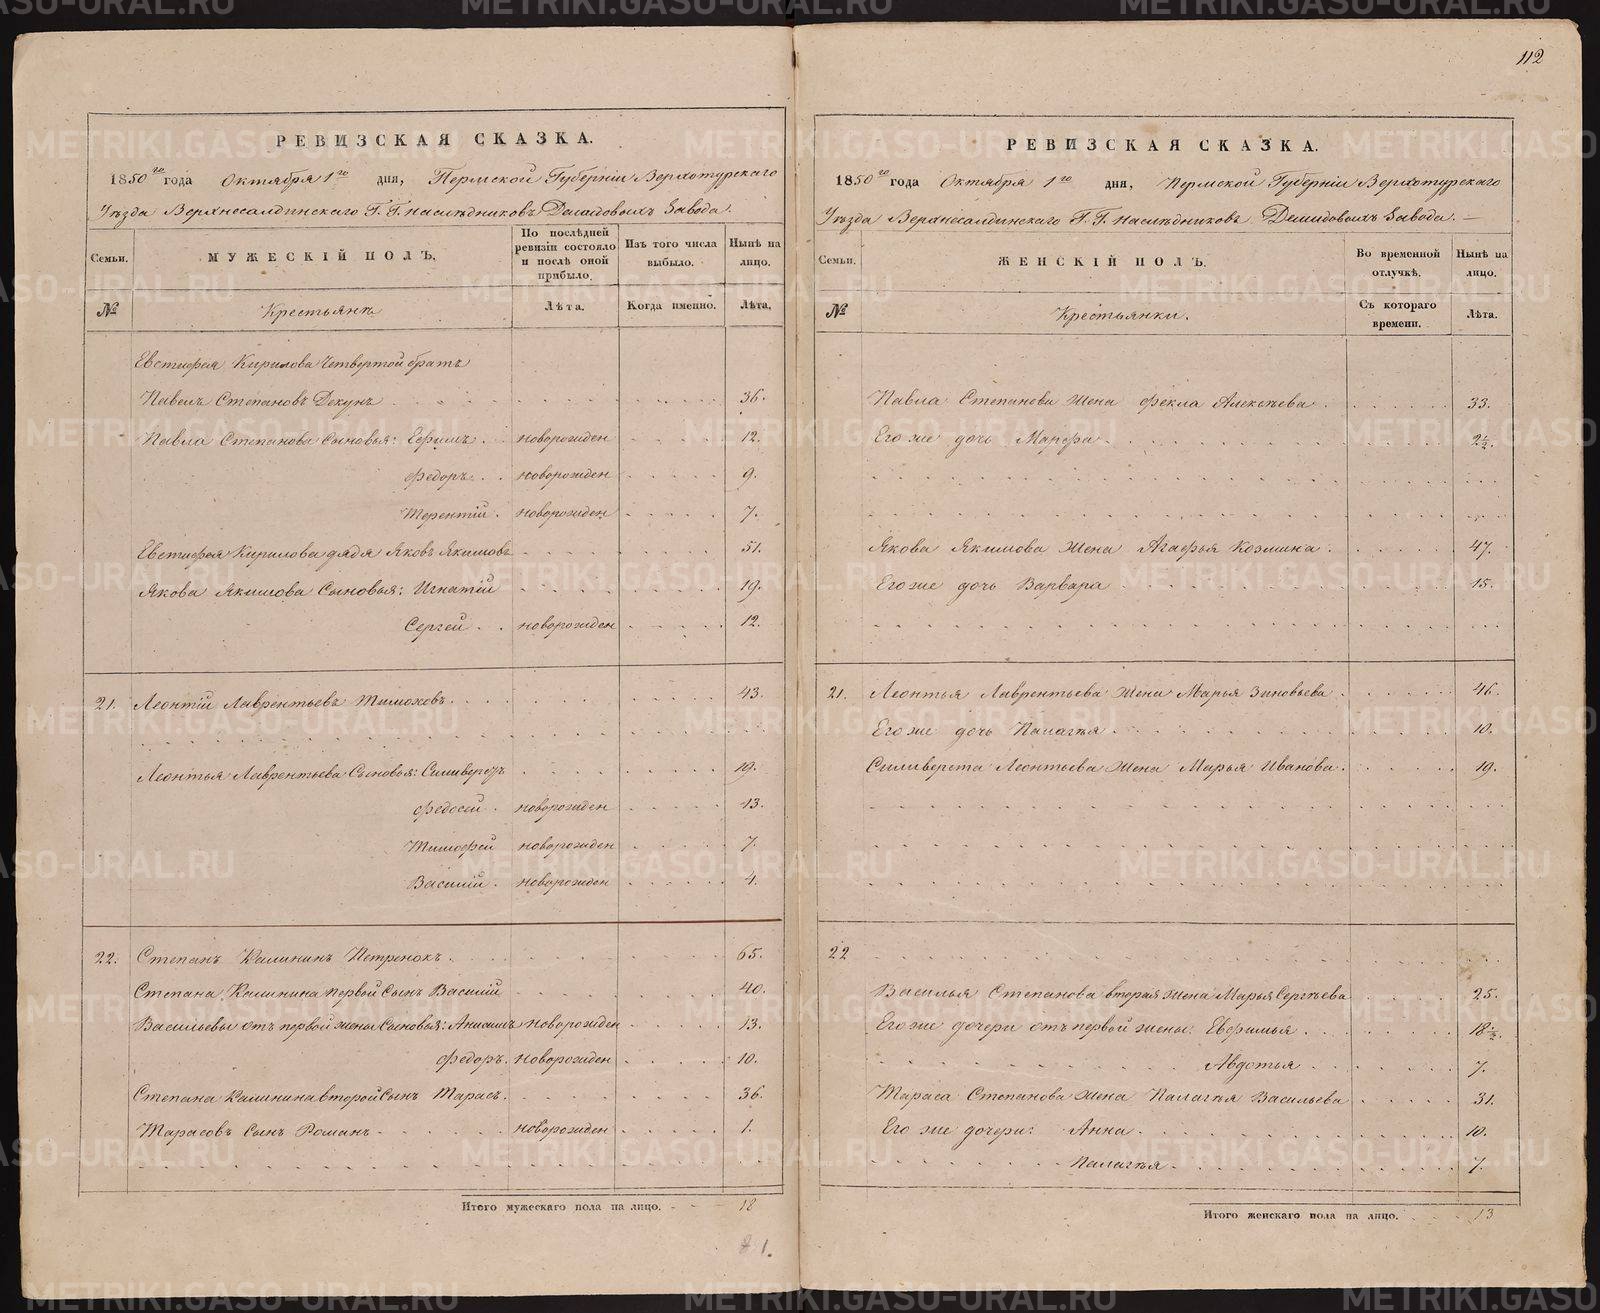 112
РЕВИЗСКАЯ СКАЗКА.
1850го года Октября 1го дня, Пермской Губерніи Верхотурскаго
Уѣзда Верхнесалдинскаго Г.Г. наслѣдниковъ Демидовыхъ Завода.
Семьи. МУЖЕСКІЙ ПОЛЪ. По послѣдней ревизіи состояло и послѣ оной прибыло. Изъ того числа выбыло. Нынѣ на лицо.
№ Крестьянъ Лѣта. Когда именно. Лѣта.
Евстифея Кирилова Четвертой братъ
Павелъ Степановъ Декунъ 36.
Павла Степанова Сыновья: Ефимъ новорожден 12.
Федоръ новорожден 9.
Терентій новорожден 7.
Евстифея Кирилова дядя Яковъ Якимовъ 51.
Якова Якимова Сыновья: Игнатій 19.
Сергей новорожден 12.
21. Леонтій Лаврентьевъ Тимоховъ 43.
Леонтья Лаврентьева Сыновья: Силиверстъ 19.
Федосей новорожден 13.
Тимофей новорожден 7.
Василій новорожден 4.
22. Степанъ Калининъ Петренокъ 65.
Степана Калинина первой Сынъ Василій 40.
Васильевы отъ первой жены Сыновья: Анисимъ новорожден 13.
Федоръ новорожден 10.
Степана Калинина второй Сынъ Тарасъ 36.
Тарасовъ Сынъ Романъ новорожден 1.
Итого мужескаго пола на лицо. 18
1.
РЕВИЗСКАЯ СКАЗКА.
1850го года Октября 1го дня, Пермской Губерніи Верхотурскаго
Уѣзда Верхнесалдинскаго Г.Г. наслѣдниковъ Демидовыхъ Завода.
Семьи. ЖЕНСКІЙ ПОЛЪ. Во временной отлучкѣ. Нынѣ на лицо.
№ Крестьянки. Съ котораго времени. Лѣта.
Павла Степанова Жена Фекла Алексѣева 33.
Его же дочь Марфа 2½.
Якова Якимова Жена Агафья Козмина 47.
Его же дочь Варвара 15.
21. Леонтья Лаврентьева Жена Марья Зиновьева 46.
Его же дочь Палагѣя 10.
Силиверста Леонтьева Жена Марья Иванова 19.
22
Василья Степанова вторая Жена Марья Сергѣева 25.
Его же дочери отъ первой жены: Евфимья 18½.
Авдотья 7.
Тараса Степанова Жена Палагѣя Васильева 31.
Его же дочери: Анна 10.
Палагѣя 7.
Итого женскаго пола на лицо. 13
METRIKI.GASO-URAL.RU